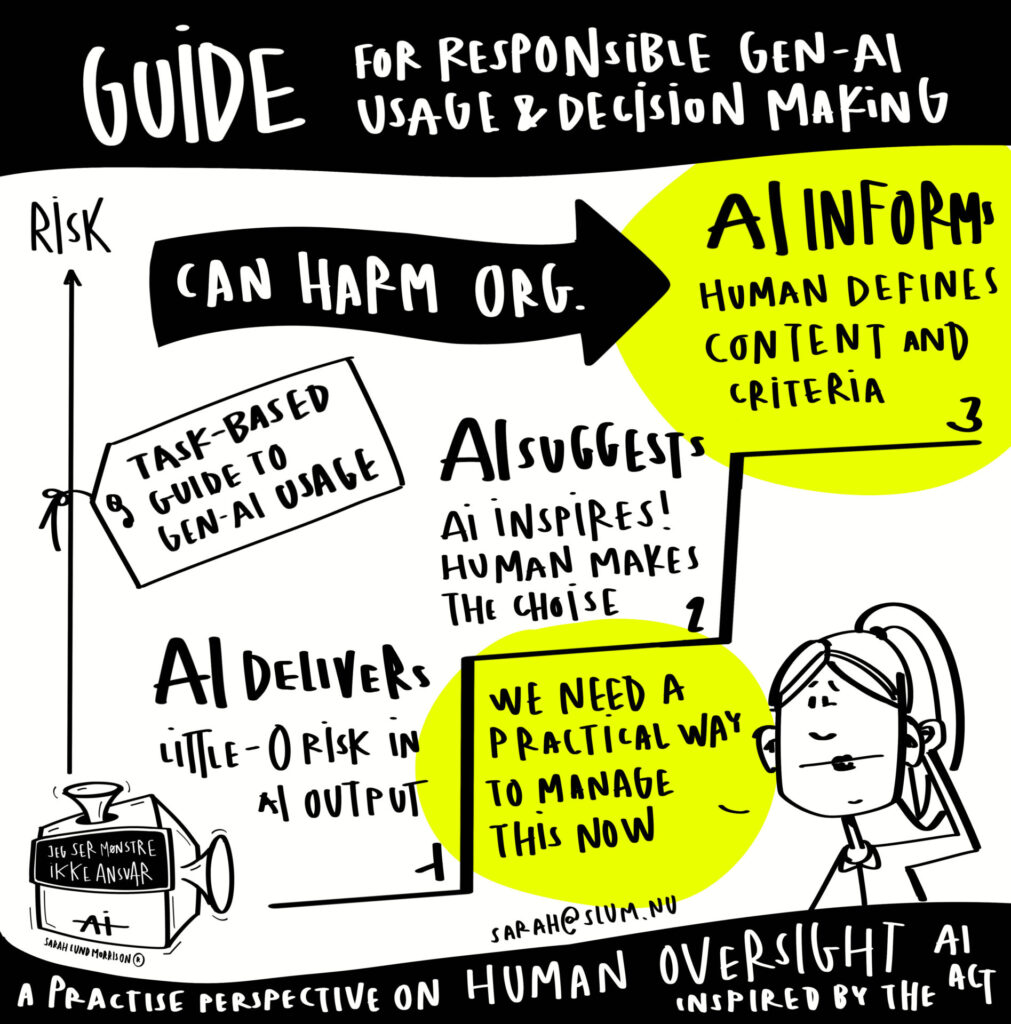 GUIDE
FOR RESPONSIBLE GEN-AI
USAGE & DECISION MAKING
RISK
CAN HARM ORG.
AI INFORMS
HUMAN DEFINES
CONTENT AND
CRITERIA
3
TASK-BASED
GUIDE TO
GEN-AI USAGE
AI SUGGESTS
AI INSPIRES!
HUMAN MAKES
THE CHOISE
2
AI DELIVERS
LITTLE-0 RISK IN
AI OUTPUT
1
WE NEED A
PRACTICAL WAY
TO MANAGE
THIS NOW
JEG SER MØNSTRE
IKKE ANSVAR
AI
SARAH LUND MORRISON®
SARAH@SLUM.NU
A PRACTISE PERSPECTIVE ON HUMAN OVERSIGHT
INSPIRED BY THE AI ACT